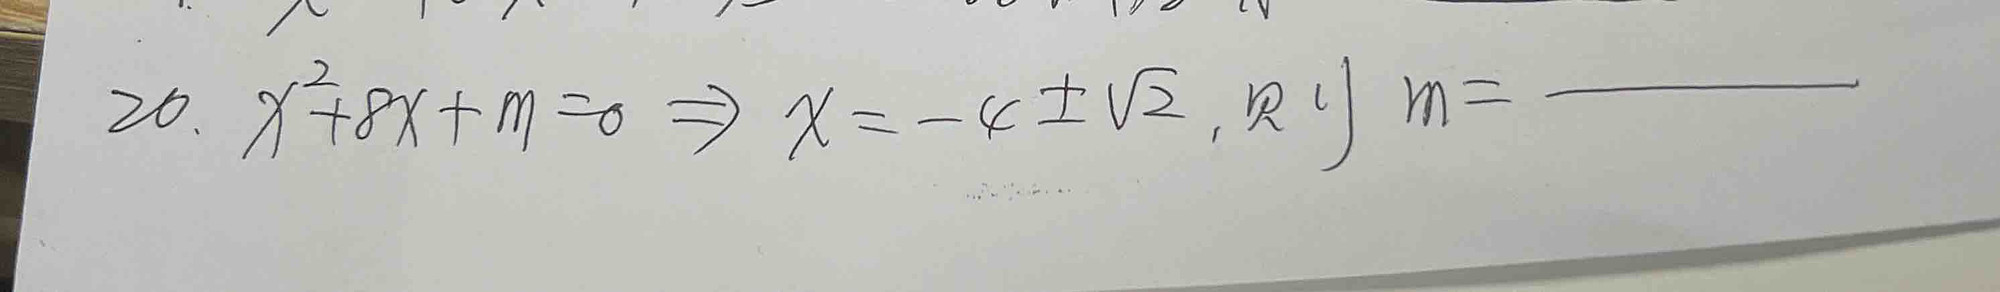 20. x²+8x+m=0 ⇒ x=-4±√2, 则 m=______